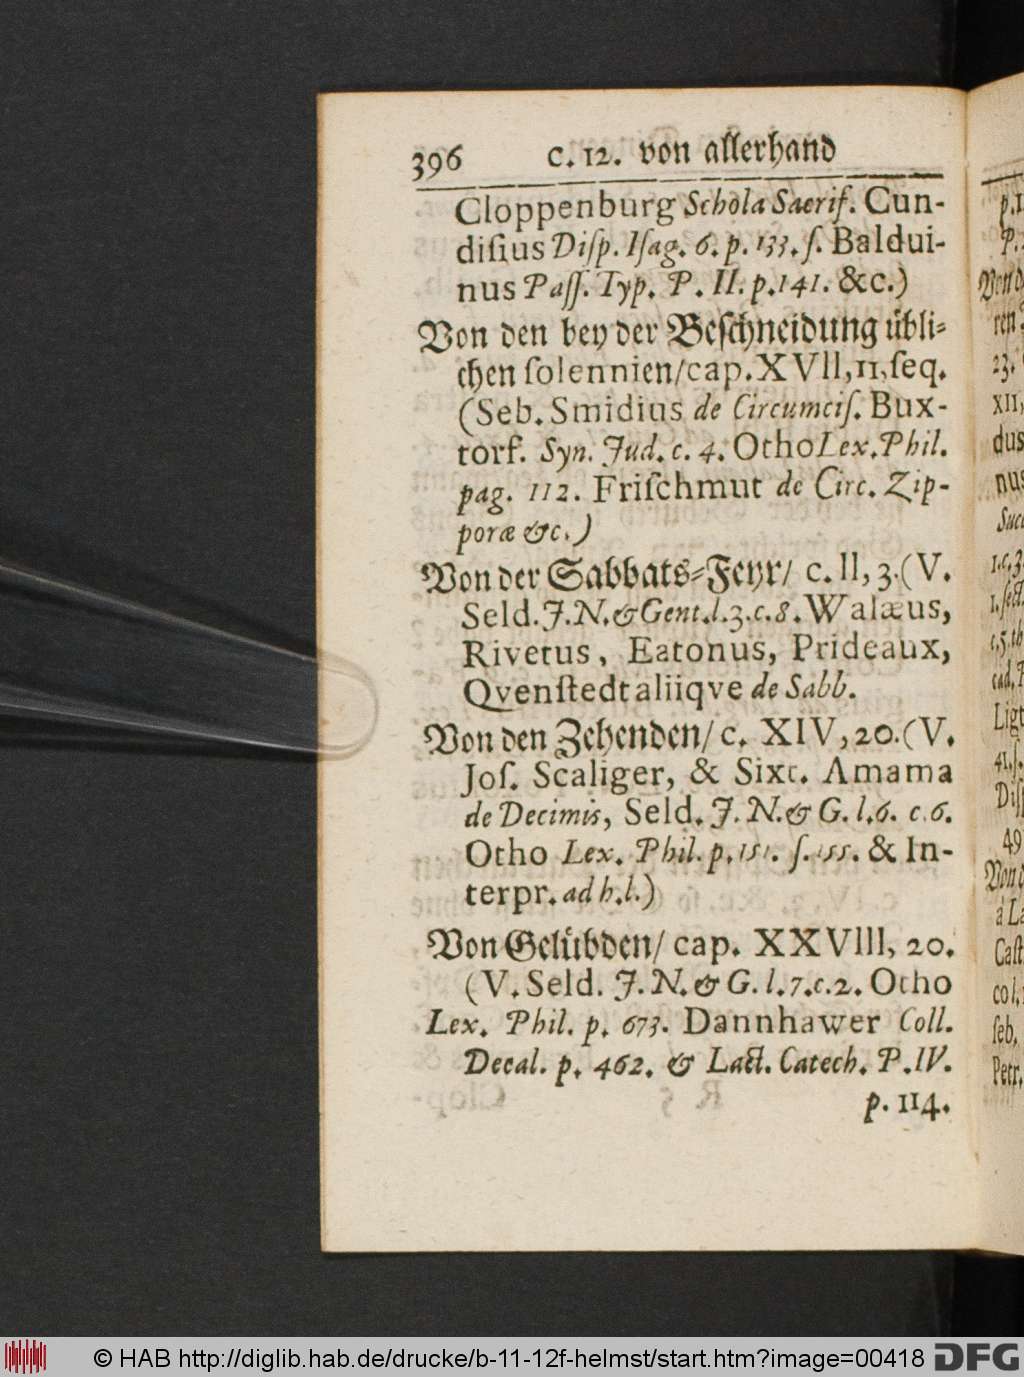 396 c. 12. von allerhand
Cloppenburg Schola Sacrif. Cun-
diſius Diſp. Iſag. 6. p. 133. ſ. Baldui-
nus Paſſ. Typ. P. II. p. 141. &c.)
Von den bey der Beſchneidung übli-
chen ſolennien/ cap. XVII, 11, ſeq.
(Seb. Smidius de Circumciſ. Bux-
torf. Syn. Jud. c. 4. Otho Lex. Phil.
pag. 112. Friſchmut de Circ. Zip-
poræ &c.)
Von der Sabbats-Feyr/ c. II, 3. (V.
Seld. J. N. & Gent. l. 3. c. 8. Walæus,
Rivetus, Eatonus, Prideaux,
Qvenſtedt aliiqve de Sabb.
Von den Zehenden/ c. XIV, 20. (V.
Joſ. Scaliger, & Sixt. Amama
de Decimis, Seld. J. N. & G. l. 6. c. 6.
Otho Lex. Phil. p. 151. ſ. 155. & In-
terpr. ad h. l.)
Von Gelübden/ cap. XXVIII, 20.
(V. Seld. J. N. & G. l. 7. c. 2. Otho
Lex. Phil. p. 673. Dannhawer Coll.
Decal. p. 462. & Lact. Catech. P. IV.
p. 114.
© HAB http://diglib.hab.de/drucke/b-11-12f-helmst/start.htm?image=00418 DFG